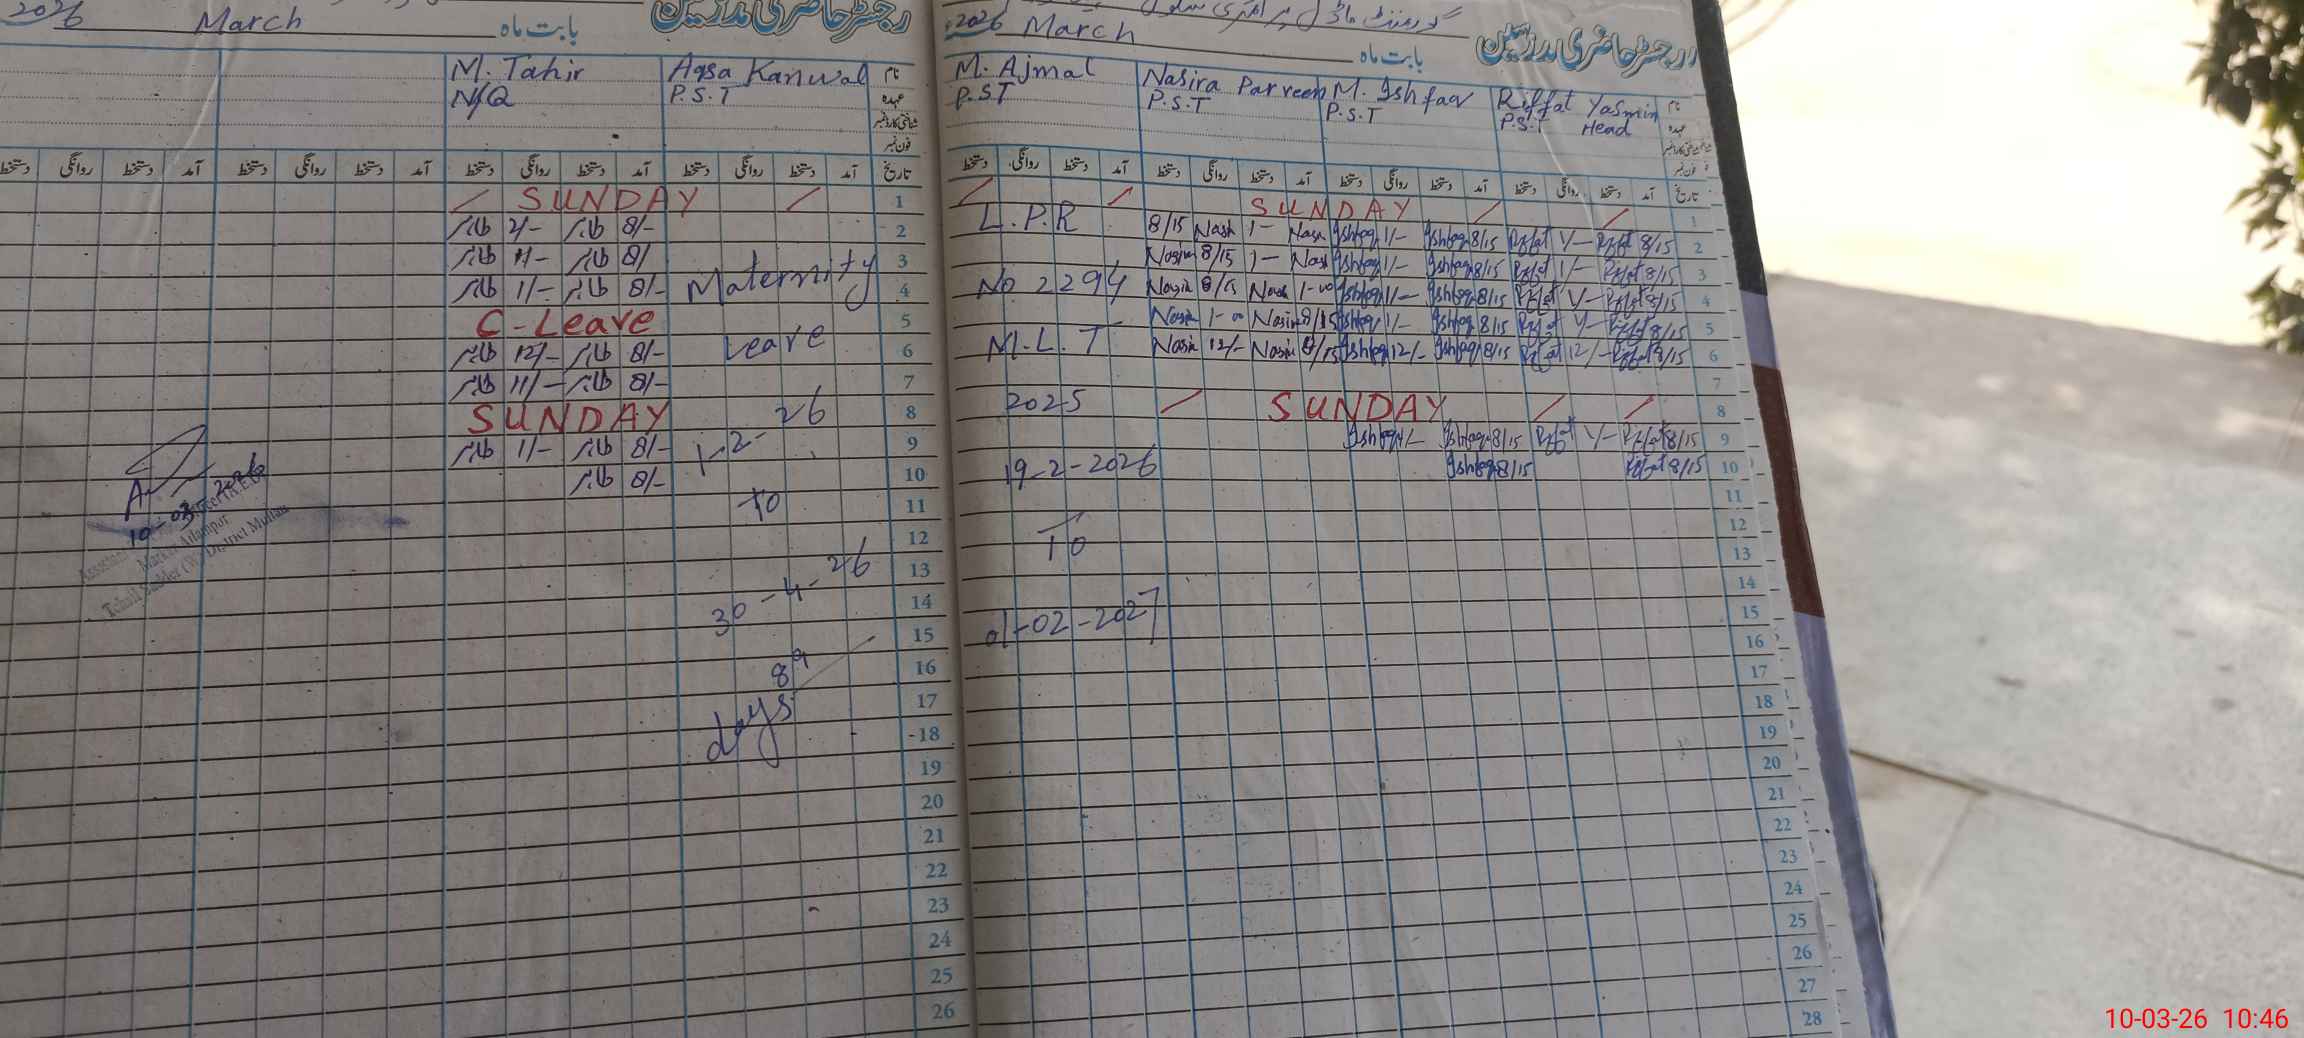 2026 March بابت ماہ
رجسٹر حاضری مدرسین
M. Tahir Aqsa Kanwal نام
N/Q P.S.T عہدہ
شناختی کارڈ نمبر
فون نمبر
دستخط روانگی دستخط آمد دستخط روانگی دستخط آمد دستخط روانگی دستخط آمد دستخط روانگی دستخط آمد تاریخ
SUNDAY 1
طاہر 2/- طاہر 8/- 2
طاہر 11/- طاہر 8/ 3
طاہر 1/- طاہر 8/- Maternity 4
C-Leave 5
طاہر 12/- طاہر 8/- Leave 6
طاہر 11/- طاہر 8/- 7
SUNDAY 1-2-26 8
طاہر 1/- طاہر 8/- 9
طاہر 8/- 10
To 11
12
30-4-26 13
14
15
89 16
days 17
18
19
20
21
22
23
24
25
26
10-03-2026
Markaz Adampur
District Multan
گورنمنٹ ماڈل پرائمری سکول
2026 March بابت ماہ
رجسٹر حاضری مدرسین
M. Ajmal Nasira Parveen M. Ishfaq Riffat Yasmin نام
P.S.T P.S.T P.S.T P.S.T Head عہدہ
شناختی کارڈ نمبر
فون نمبر
دستخط روانگی دستخط آمد دستخط روانگی دستخط آمد دستخط روانگی دستخط آمد دستخط روانگی دستخط آمد تاریخ
SUNDAY 1
L.P.R 8/15 Nasir 1- Nasir Ishfaq 1/- Ishfaq 8/15 Riffat 1/- Riffat 8/15 2
Nasir 8/15 1- Nasir Ishfaq 1/- Ishfaq 8/15 Riffat 1/- Riffat 8/15 3
No 2294 Nasir 8/15 Nasir 1-00 Ishfaq 1/- Ishfaq 8/15 Riffat 1/- Riffat 8/15 4
Nasir 1-00 Nasir 8/15 Ishfaq 1/- Ishfaq 8/15 Riffat 1/- Riffat 8/15 5
M.L.T Nasir 12/- Nasir 8/15 Ishfaq 12/- Ishfaq 8/15 Riffat 12/- Riffat 8/15 6
7
2025 SUNDAY 8
Ishfaq 1/- Ishfaq 8/15 Riffat 1/- Riffat 8/15 9
19-2-2026 Ishfaq 8/15 Riffat 8/15 10
11
To 12
13
14
01-02-2027 15
16
17
18
19
20
21
22
23
24
25
26
27
28
10-03-26 10:46